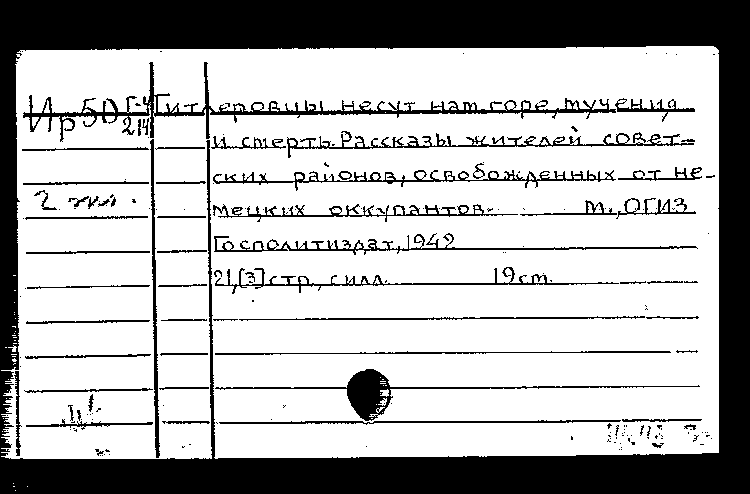 Ир50 Г-4 Гитлеровцы несут нам горе, мучения
214
и смерть. Рассказы жителей совет-
ских районов, освобожденных от не-
2 экз.
мецких оккупантов. М., ОГИЗ
Госполитиздат, 1942
21,[3] стр., с илл. 19 см.